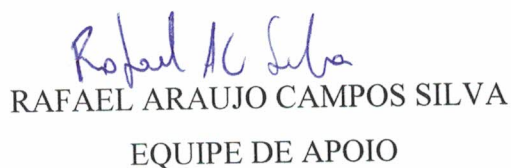 Rafael AC Silva
RAFAEL ARAUJO CAMPOS SILVA
EQUIPE DE APOIO